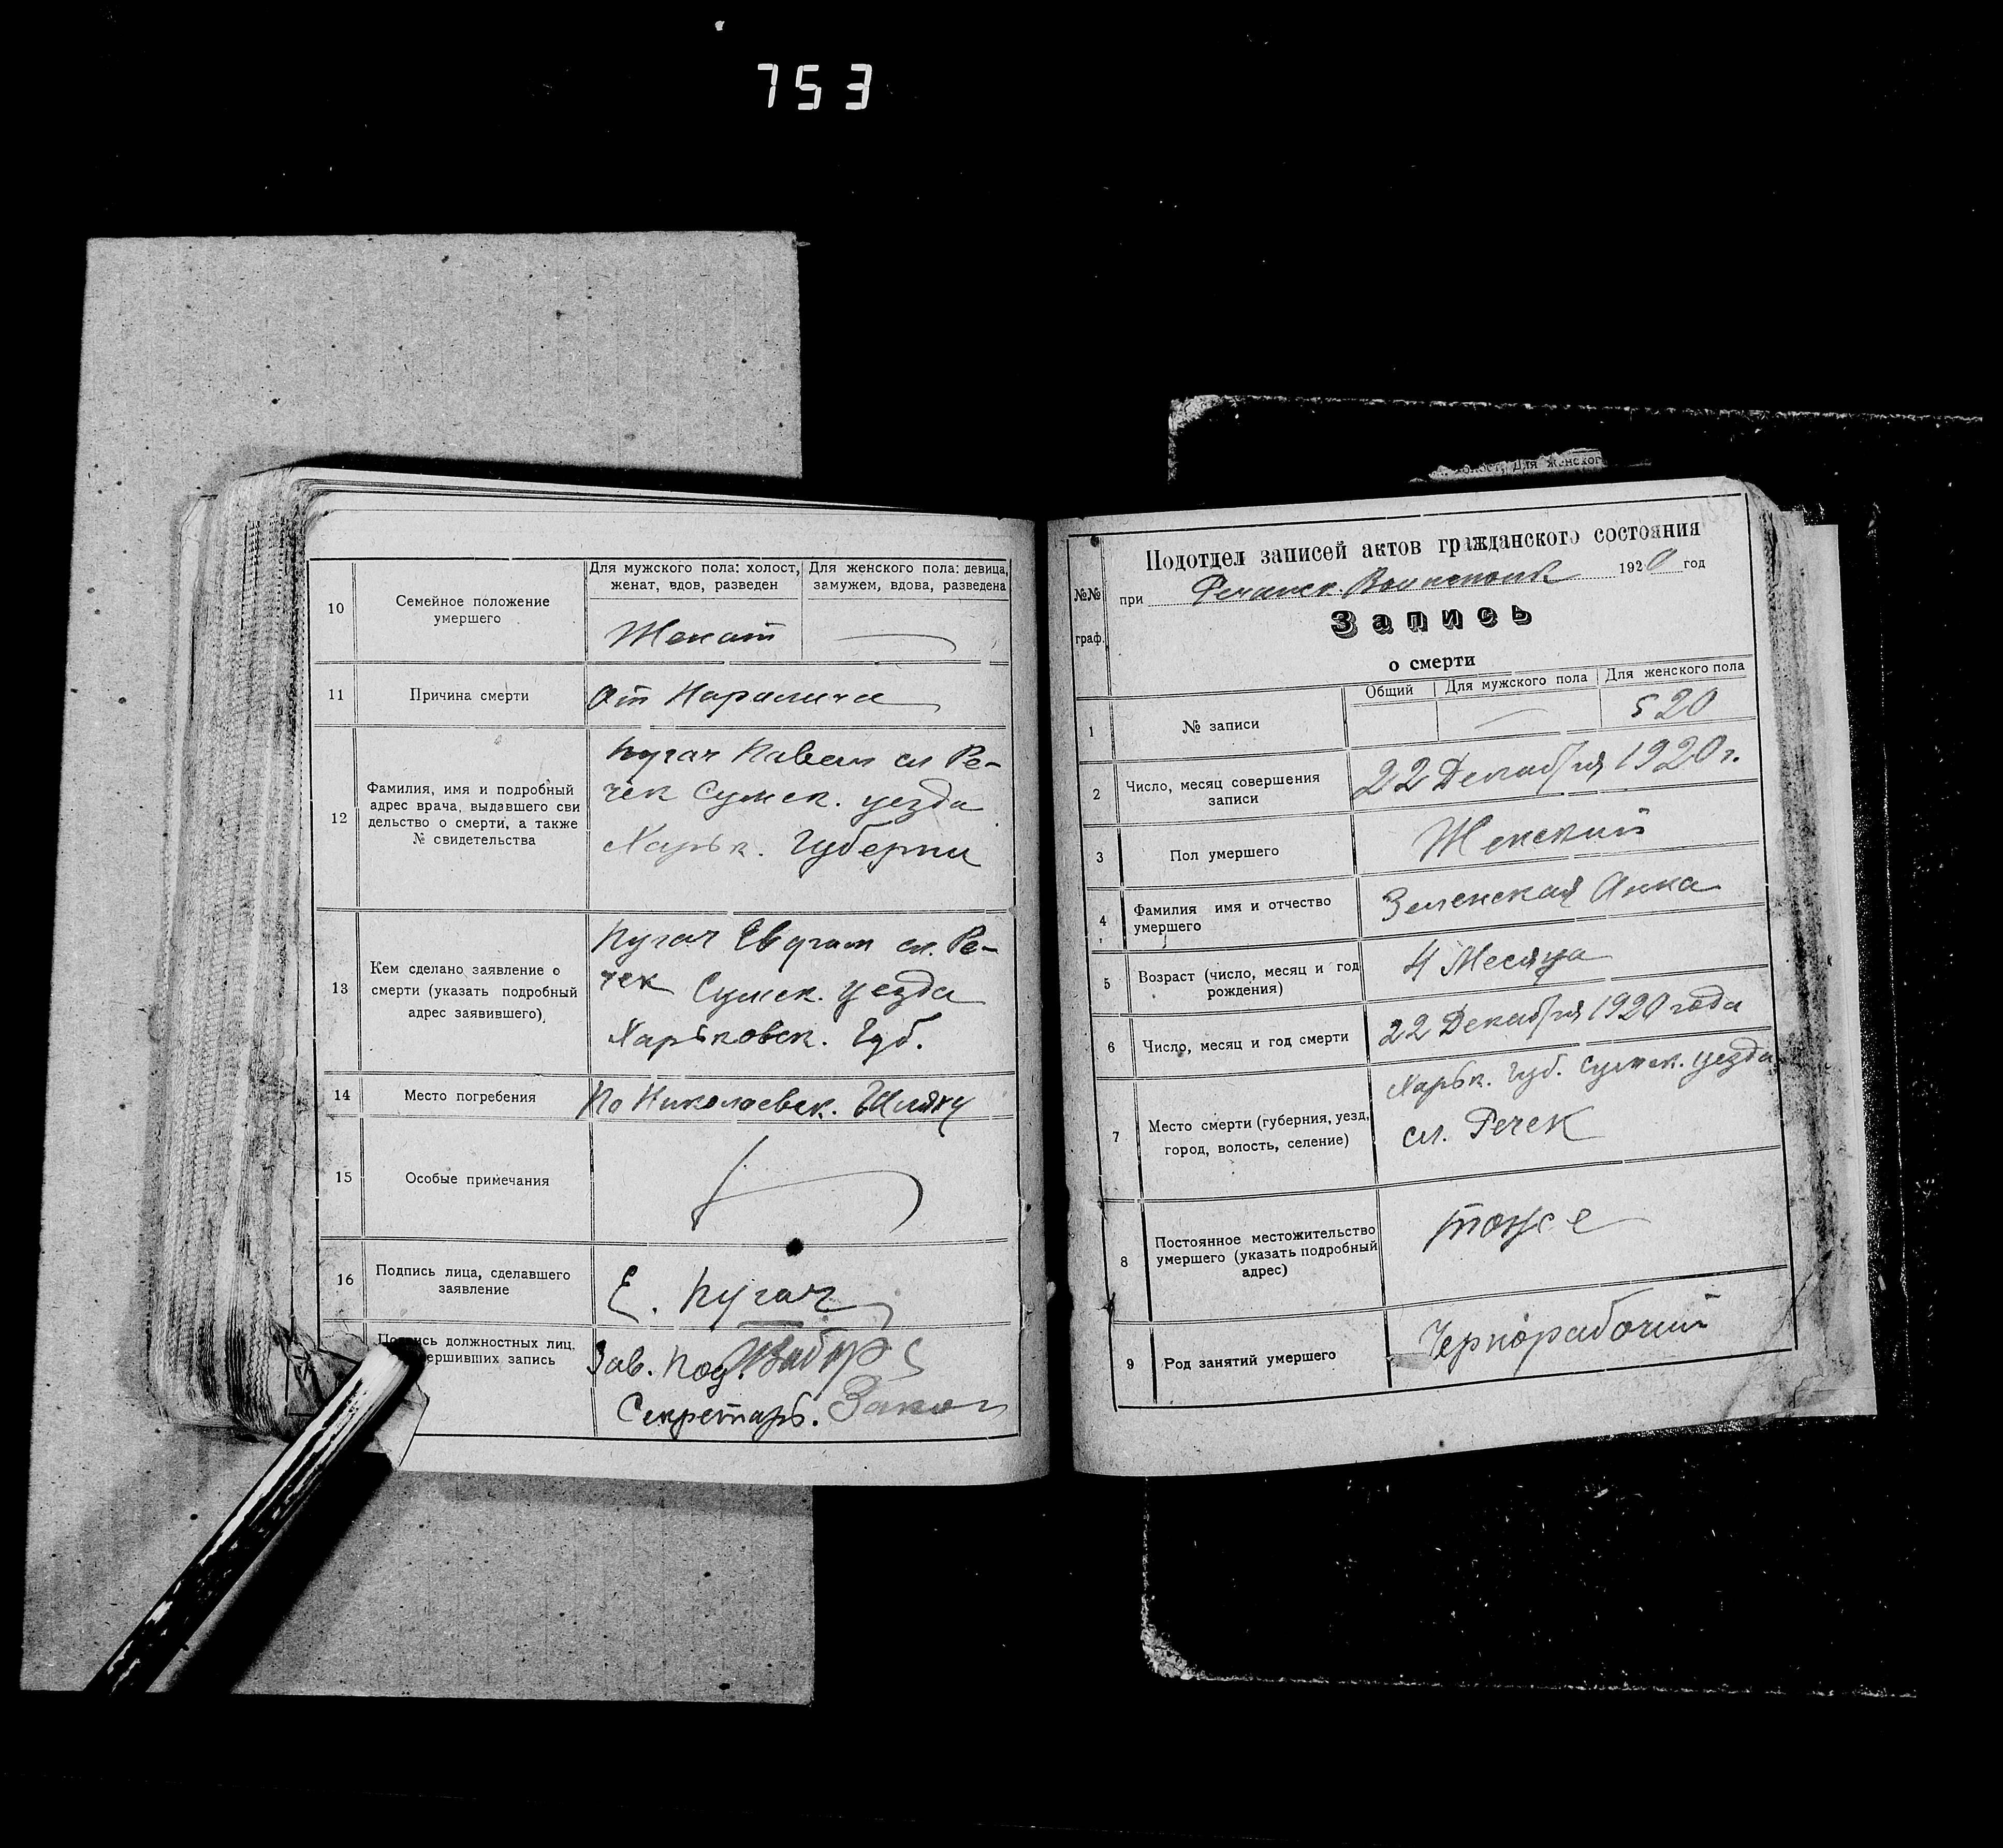 753
10
Семейное положение
умершего
Для мужского пола: холост,
женат, вдов, разведен
Для женского пола: девица,
замужем, вдова, разведена
Женат
11
Причина смерти
От Паралича
12
Фамилия, имя и подробный
адрес врача, выдавшего сви
дельство о смерти, а также
№ свидетельства
Пугач Павел сл Ре-
чек Сумск. уезда
Харьк. Губерни
13
Кем сделано заявление о
смерти (указать подробный
адрес заявившего)
Пугач сл. Ре-
чек Сумск. уезда
Харьковск. Губ.
14
Место погребения
По Николаевск. Шляху
15
Особые примечания
16
Подпись лица, сделавшего
заявление
Е. Пугач
Подпись должностных лиц,
вершивших запись
Зав. Под.
Секретарь.
для женског
№№
граф.
Подотдел записей актов гражданского состояния
при Речанск. 1920 год
Запись
о смерти
Общий
Для мужского пола
Для женского пола
1
№ записи
520
2
Число, месяц совершения
записи
22 Декабря 1920 г.
3
Пол умершего
Женский
4
Фамилия имя и отчество
умершего
Зеленская Анна
5
Возраст (число, месяц и год
рождения)
4 Месяца
6
Число, месяц и год смерти
22 Декабря 1920 года
7
Место смерти (губерния, уезд,
город, волость, селение)
Харьк. Губ. Сумск. уезда
сл. Речек
8
Постоянное местожительство
умершего (указать подробный
адрес)
тоже
9
Род занятий умершего
Чернорабочий